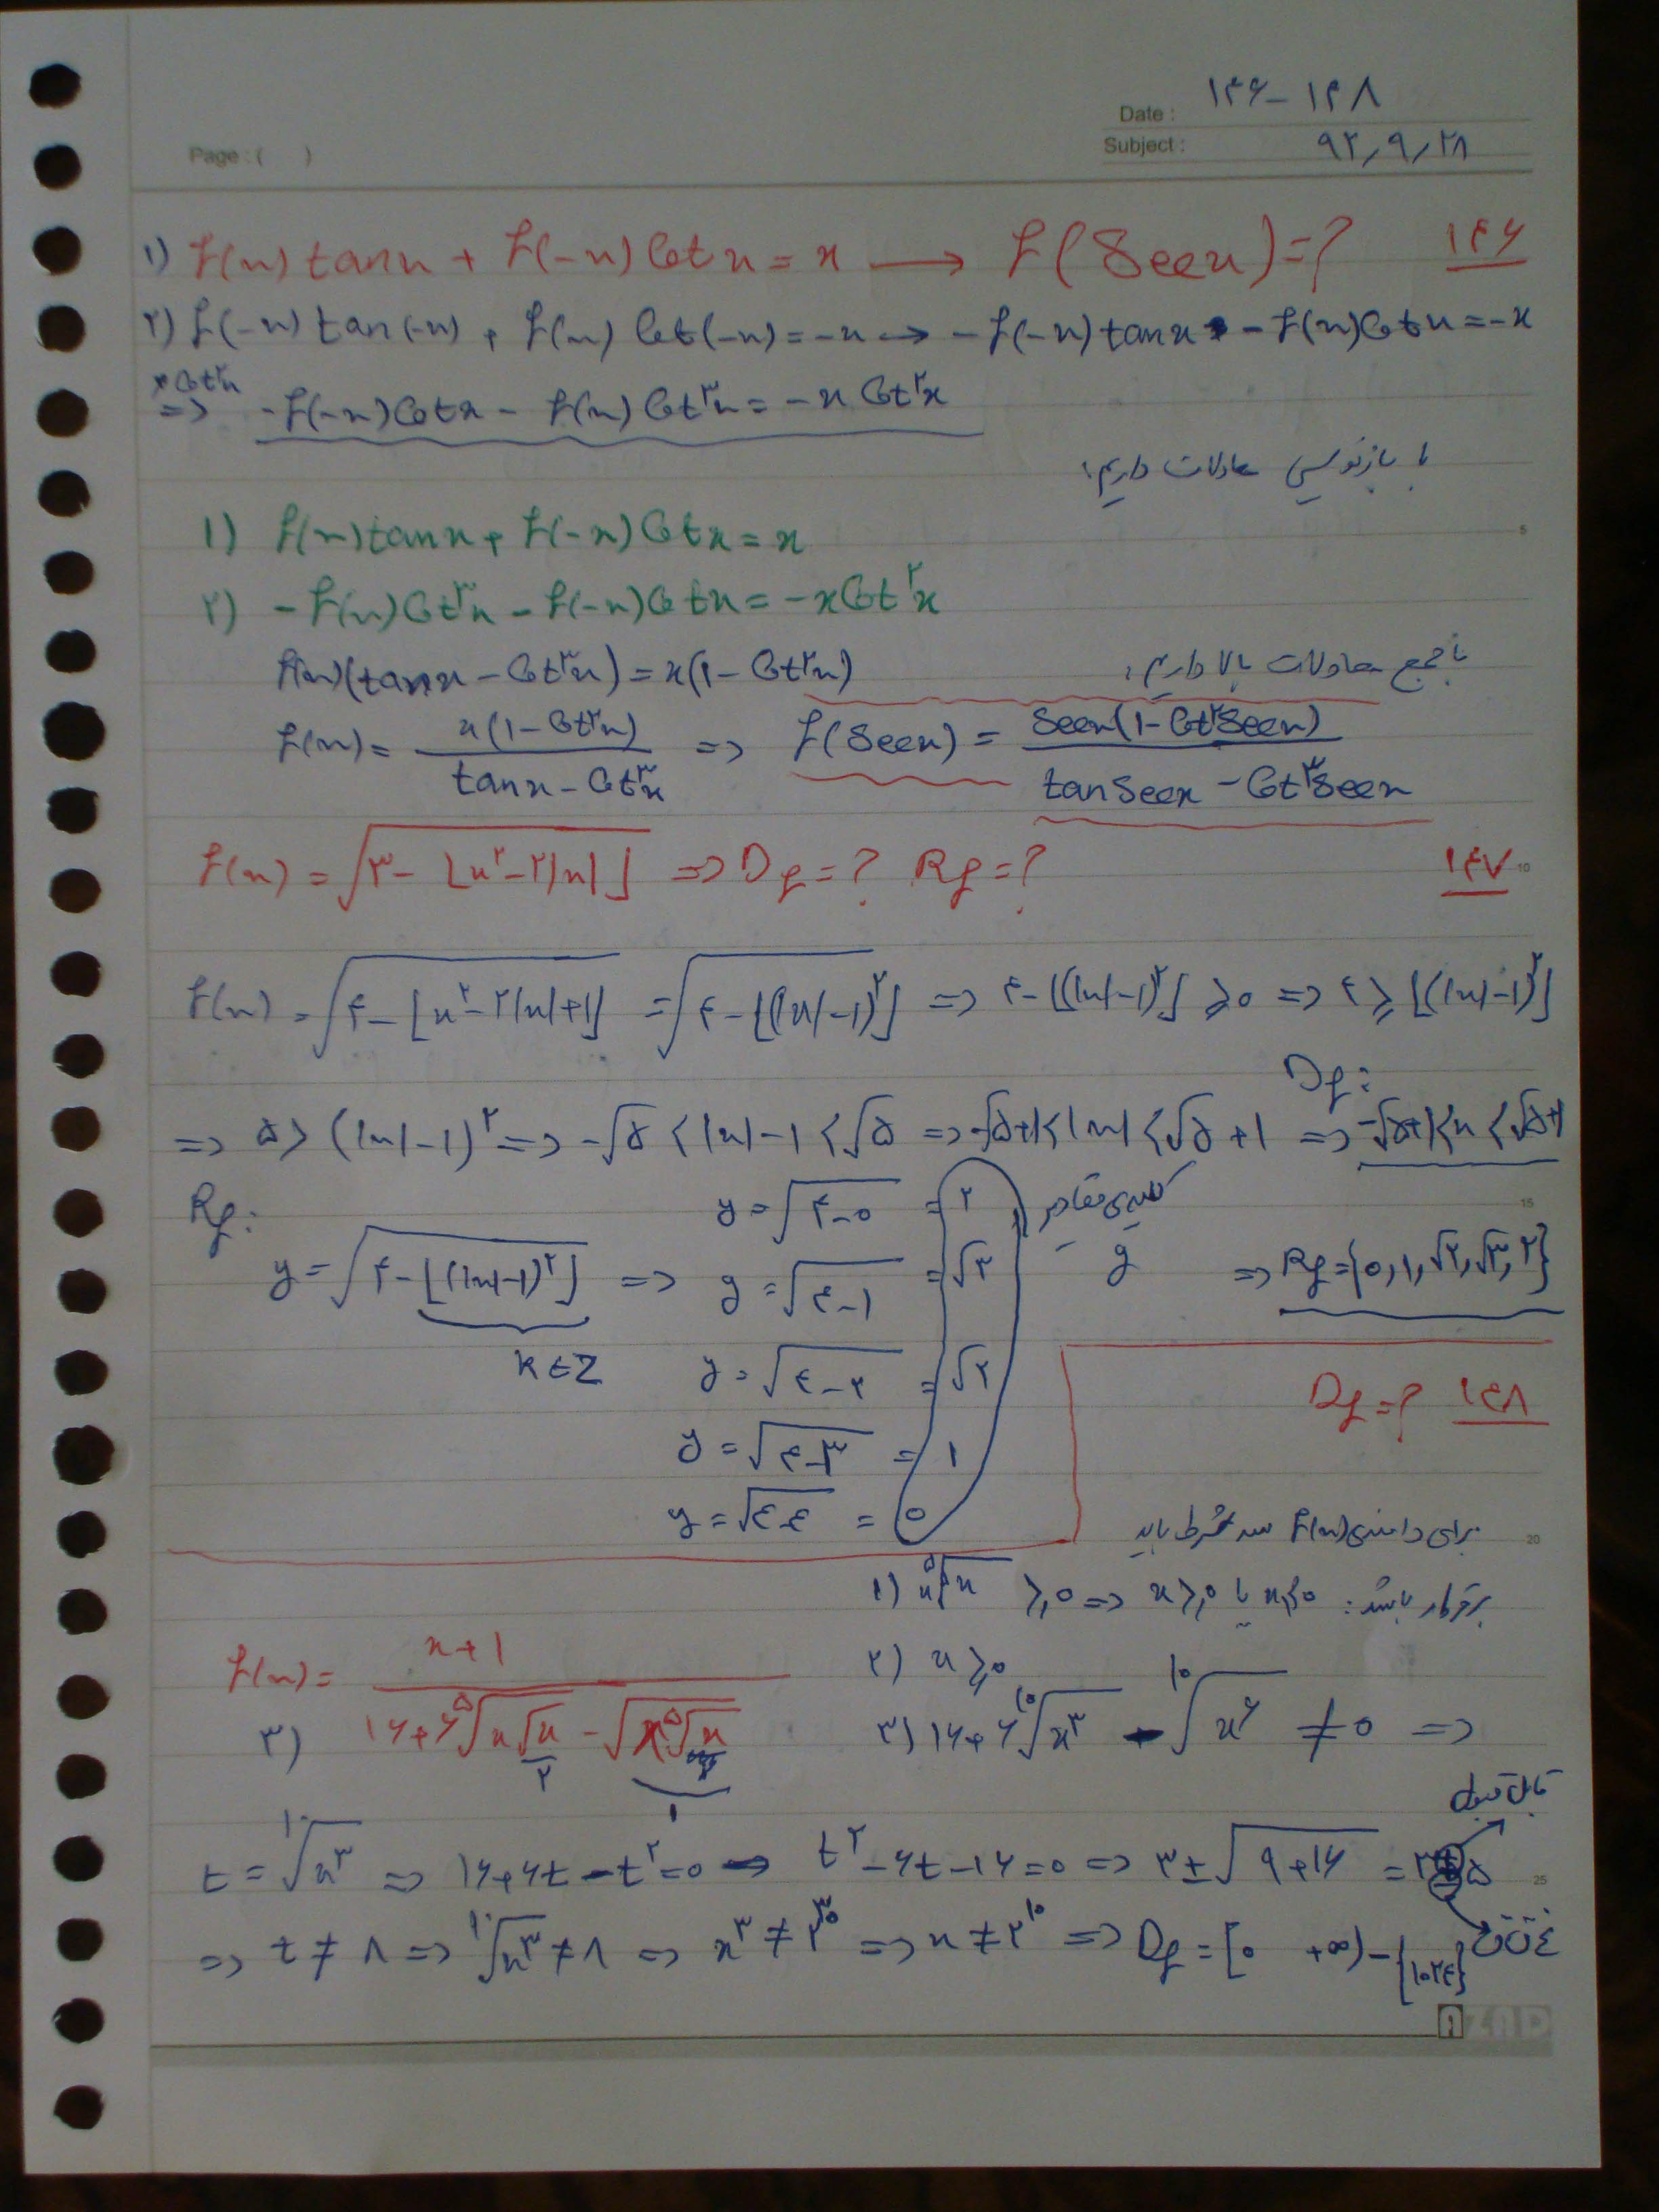 Date : ۱۴۶-۱۴۸
Page : ( )
Subject : ۹۲,۹,۲۸
۱) f(x) tanx + f(-x) Cotx = x → f(Secx) = ? ۱۴۶
۲) f(-x) tan(-x) + f(x) Cot(-x) = -x → -f(-x) tanx - f(x) Cotx = -x
×Cot²x ⇒ -f(-x) Cotx - f(x) Cot³x = -x Cot²x
با بازنویسی معادلات داریم:
۱) f(x) tanx + f(-x) Cotx = x
۲) -f(x) Cot³x - f(-x) Cotx = -x Cot²x
با جمع معادلات بالا داریم:
f(x)(tanx - Cot³x) = x(1 - Cot²x)
f(x) = x(1 - Cot²x) / (tanx - Cot³x) ⇒ f(Secx) = Secx(1 - Cot²Secx) / (tanSecx - Cot³Secx)
f(x) = √(۳ - ⌊x² - ۲|x|⌋) ⇒ Df = ? Rf = ? ۱۴۷
f(x) = √(۴ - ⌊x² - ۲|x| + 1⌋) = √(۴ - ⌊(|x| - 1)²⌋) ⇒ ۴ - ⌊(|x| - 1)²⌋ ≥ 0 ⇒ ۴ ≥ ⌊(|x| - 1)²⌋
Df:
⇒ ۵ > (|x| - 1)² ⇒ -√۵ < |x| - 1 < √۵ ⇒ -√۵ + 1 < |x| < √۵ + 1 ⇒ -√۵ + 1 < x < √۵ + 1
Rf:
y = √(۴ - ⌊(|x| - 1)²⌋) ⇒
k ∈ Z
y = √(۴ - 0) = ۲
y = √(۴ - 1) = √۳
y = √(۴ - ۲) = √۲
y = √(۴ - ۳) = 1
y = √(۴ - ۴) = 0
کلیه‌ی مقادیر y ⇒ Rf = {0, 1, √۲, √۳, ۲}
Df = ? ۱۴۸
برای دامنه‌ی f(x) سه شرط باید
برقرار باشد:
۱) x ⁵√x ≥ 0 ⇒ x ≥ 0 یا x ≤ 0
۲) x ≥ 0
f(x) = (x + 1) / (۱۶ + ۶ ⁵√(x√x) - √(x ⁵√x))
۳) ۱۶ + ۶ ¹⁰√x³ - ¹⁰√x⁶ ≠ 0 ⇒
t = ¹⁰√x³ ⇒ ۱۶ + ۶t - t² = 0 → t² - ۶t - ۱۶ = 0 ⇒ ۳ ± √(۹ + ۱۶) = ۳ ± ۵
قابل قبول
غ ق ق
⇒ t ≠ ۸ ⇒ ¹⁰√x³ ≠ ۸ ⇒ x³ ≠ ۲³⁰ ⇒ x ≠ ۲¹⁰ ⇒ Df = [0 +∞) - {۱۰۲۴}
5
10
15
20
25
AZAD